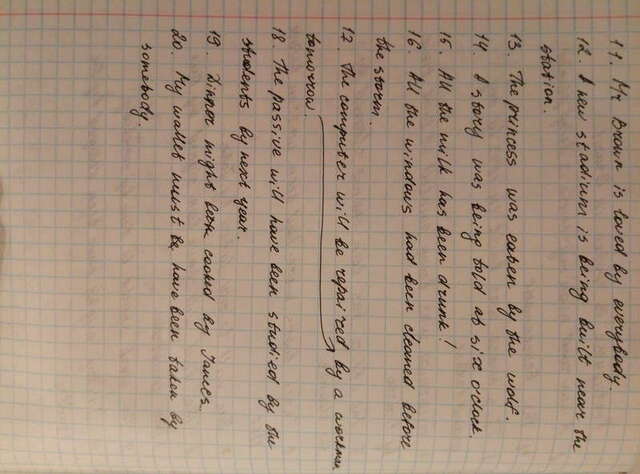 11. Mr Brown is loved by everybody.
12. A new stadium is being built near the
station.
13. The princess was eaten by the wolf.
14. A story was being told at six o'clock.
15. All the milk has been drunk!
16. All the windows had been cleaned before
the storm.
17 The computer will be repaired by a workman
tomorrow.
18. The passive will have been studied by the
students by next year.
19. Dinner might been cooked by James.
20. My wallet must be have been taken by
somebody.